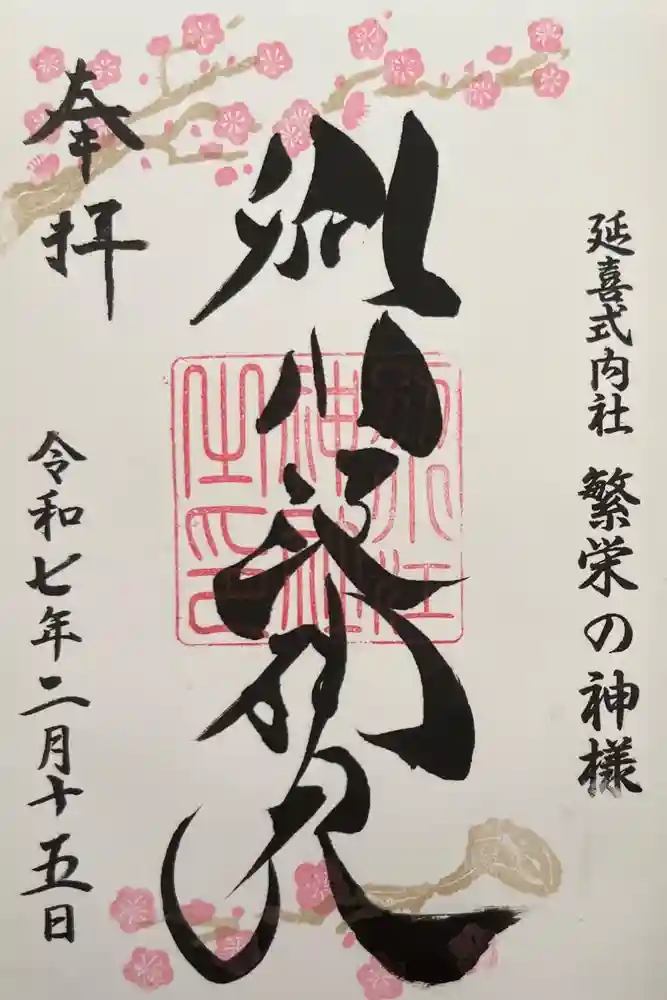 延喜式内社 繁栄の神様
神社之印
奉拝
令和七年二月十五日